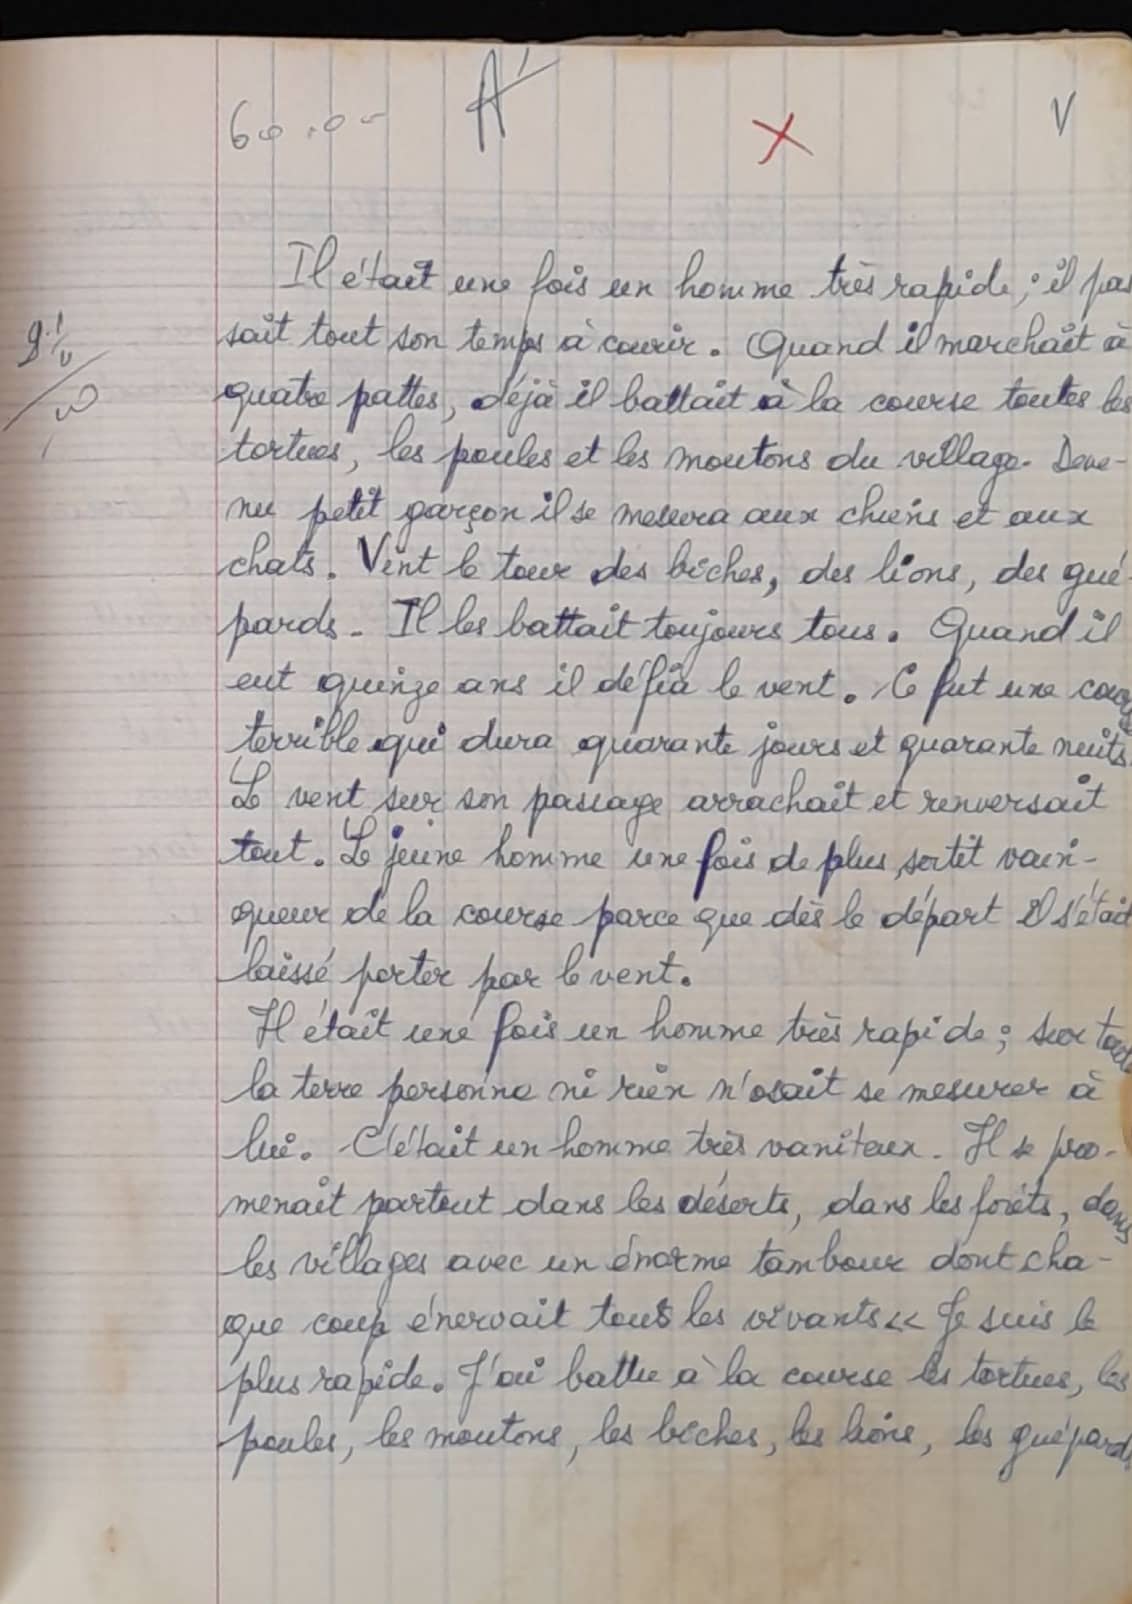 A
X
V
Il était une fois un homme très rapide ; il pas
sait tout son temps à courir. Quand il marchait à
quatre pattes, déjà il battait à la course toutes les
tortues, les poules et les moutons du village. Deve-
nu petit garçon il se mesura aux chiens et aux
chats. Vint le tour des biches, des lions, des gué-
pards. Il les battait toujours tous. Quand il
eut quinze ans il défia le vent. Ce fut une course
terrible qui dura quarante jours et quarante nuits.
Le vent sur son passage arrachait et renversait
tout. Le jeune homme une fois de plus, sortit vain-
queur de la course parce que dès le départ Il s'était
laissé porter par le vent.
Il était une fois un homme très rapide ; sur toute
la terre personne ni rien n'osait se mesurer à
lui. C'était un homme très vaniteux. Il se pro-
menait partout dans les déserts, dans les forêts, dans
les villages avec un énorme tambour dont cha-
que coup énervait tous les vivants << Je suis le
plus rapide. J'ai battu à la course les tortues, les
poules, les moutons, les biches, les lions, les guépards